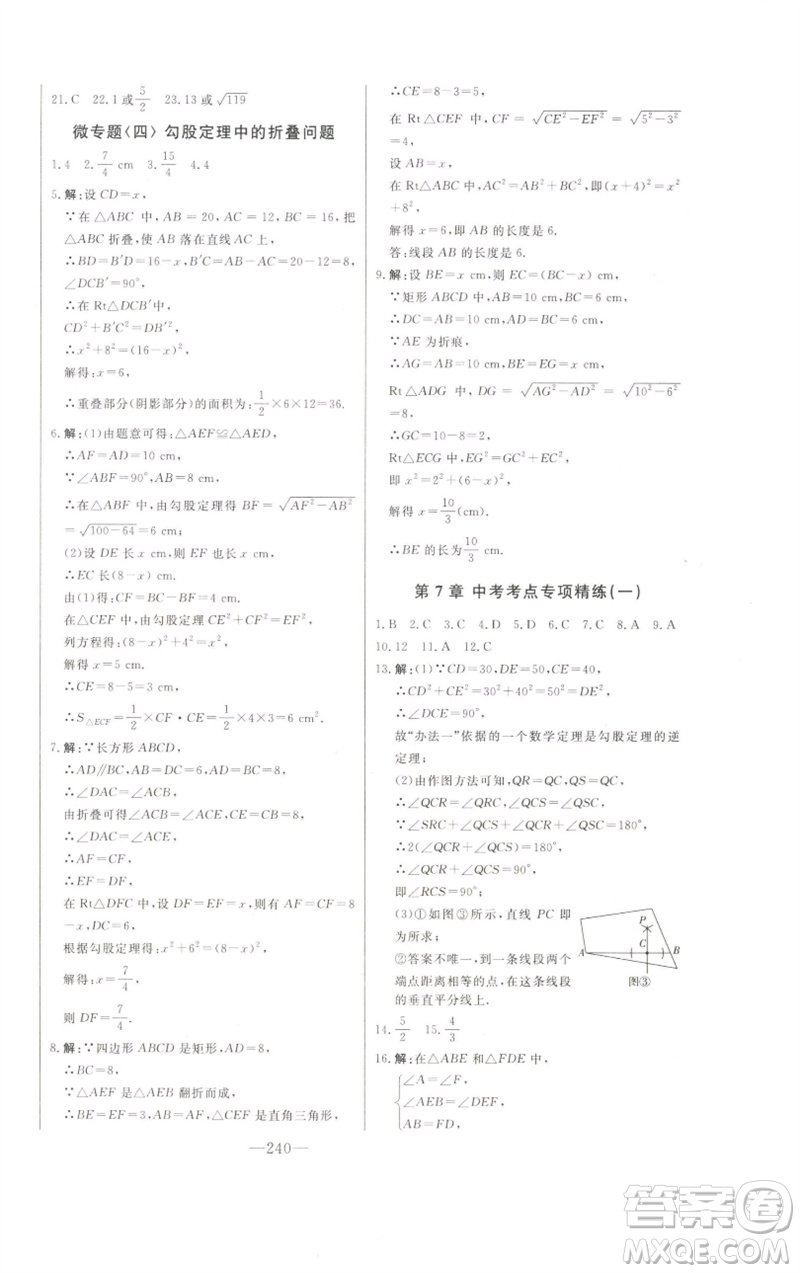 21. C　22. 1 或 5/2　23. 13 或 √119
微专题(四) 勾股定理中的折叠问题
1. 4　2. 7/4 cm　3. 15/4　4. 4
5. 解:设 CD=x,
∵在△ABC 中,AB=20,AC=12,BC=16,把
△ABC 折叠,使 AB 落在直线 AC 上,
∴BD=B′D=16-x,B′C=AB-AC=20-12=8,
∠DCB′=90°,
∴在 Rt△DCB′中,
CD²+B′C²=DB′²,
∴x²+8²=(16-x)²,
解得:x=6,
∴重叠部分(阴影部分)的面积为:1/2×6×12=36.
6. 解:(1)由题意可得:△AEF≌△AED,
∴AF=AD=10 cm,
∵∠ABF=90°,AB=8 cm,
∴在△ABF 中,由勾股定理得 BF=√(AF²-AB²)
=√(100-64)=6 cm;
(2)设 DE 长为 x cm,则 EF 也长 x cm,
∴EC 长(8-x) cm,
由(1)得:CF=BC-BF=10-6=4 cm,
在△CEF 中,由勾股定理得 CE²+CF²=EF²,
列方程得:(8-x)²+4²=x²,
解得 x=5 cm,
∴CE=8-5=3 cm,
∴S△ECF=1/2×CF·CE=1/2×4×3=6 cm².
7. 解:∵长方形 ABCD,
∴AD∥BC,AB=DC=6,AD=BC=8,
∴∠DAC=∠ACB,
由折叠可得∠ACB=∠ACE,EC=BC=8,
∴∠DAC=∠ACE,
∴AF=CF,
∴EF=DF,
在 Rt△DFC 中,设 DF=EF=x,则有 AF=CF=8
-x,DC=6,
根据勾股定理得:x²+6²=(8-x)²,
解得:x=7/4,
则 DF=7/4.
8. 解:∵四边形 ABCD 是矩形,AD=8,
∴BC=8,
∵△AEF 是△AEB 翻折而成,
∴BE=EF=3,AB=AF,△CEF 是直角三角形,
∴CE=8-3=5,
在 Rt△CEF 中,CF=√(CE²-EF²)=√(5²-3²)
=4,
设 AB=x,
在 Rt△ABC 中,AC²=AB²+BC²,即(x+4)²=x²
+8²,
解得 x=6,则 AB=6.
答:线段 AB 的长度是 6.
9. 解:设 BE=x cm,则 EC=(BC-x)cm,
∵矩形 ABCD 中,AB=10 cm,AD=6 cm,
∴DC=AB=10 cm,BC=AD=6 cm,
∵AE 为折痕,
∴AG=AB=10 cm,GE=BE=x cm,
Rt△ADG 中,DG=√(AG²-AD²)=√(10²-6²)
=8,
∴GC=10-8=2,
Rt△ECG 中,GE²=GC²+EC²,
即 x²=2²+(6-x)²,
解得 x=10/3(cm).
∴BE 的长为10/3 cm.
第 7 章 中考考点专项精练(一)
1. B　2. C　3. C　4. D　5. D　6. C　7. C　8. A　9. A
10. 12　11. A　12. C
13. 解:(1)∵CD=30,DE=50,CE=40,
∴CD²+CE²=30²+40²=50²=DE²,
∴∠DCE=90°,
故“办法一”依据的一个数学定理是勾股定理的逆
定理;
(2)由作图方法可知,QR=QC,QS=QC,
∴∠QCR=∠QRC,∠QCS=∠QSC,
∵∠SRC+∠QCR+∠QCS+∠QSC=180°,
∴2(∠QCR+∠QCS)=180°,
∴∠QCR+∠QCS=90°,
即∠RCS=90°;
(3)①如图③所示,直线 PC 即
为所求;
②答案不唯一,到一条线段两个
端点距离相等的点,在这条线段
的垂直平分线上.
P
C
A
B
图③
14. 5/2　15. 4/3
16. 解:在△ABE 和△FDE 中,
∠A=∠F,
∠AEB=∠DEF,
AB=FD,
—240—
答案圈
MXQE.COM